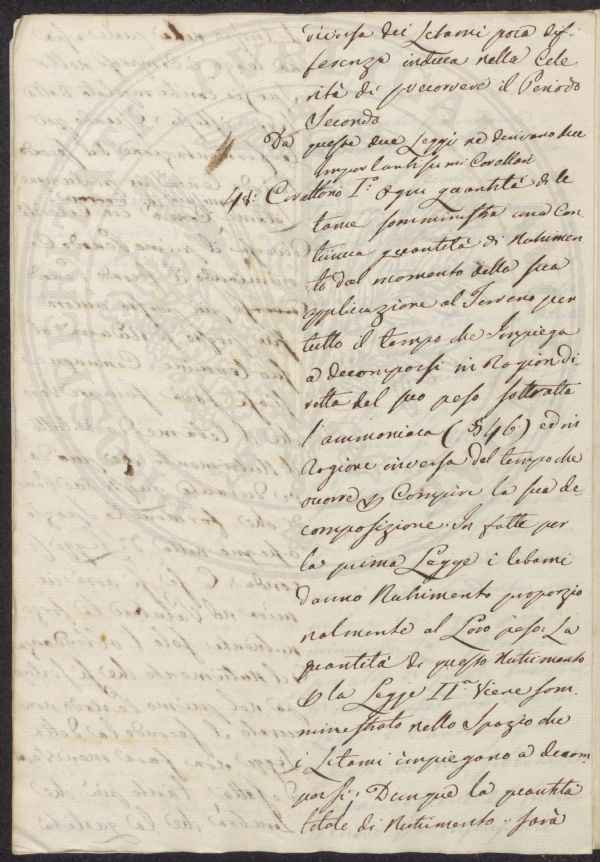 diversa dei Letami poca dif-
ferenza induca nella Cele
rità di precorrere il Periodo
Secondo
Da queste due Leggi ne derivano due
importantissimi Corollari
48: Corollario I.° Ogni quantità di le
tame somministra una con
tinua quantità di Nutrimen
to dal momento della sua
applicazione al Terreno per
tutto il tempo che Impiega
a decomporsi in Ragion di
retta del suo peso sottratta
l'ammoniaca (§ 46) ed in
Ragione inversa del tempo che
occorre p Compire la sua de
composizione. In fatti per
la prima Legge i letami
danno Nutrimento proporzio
nalmente al Loro peso: La
quantità di questo Nutrimento
p la Legge II.a Viene som
ministrato nello Spazio che
i Letami impiegano a decom
porsi; Dunque la quantità
totale di Nutrimento sarà